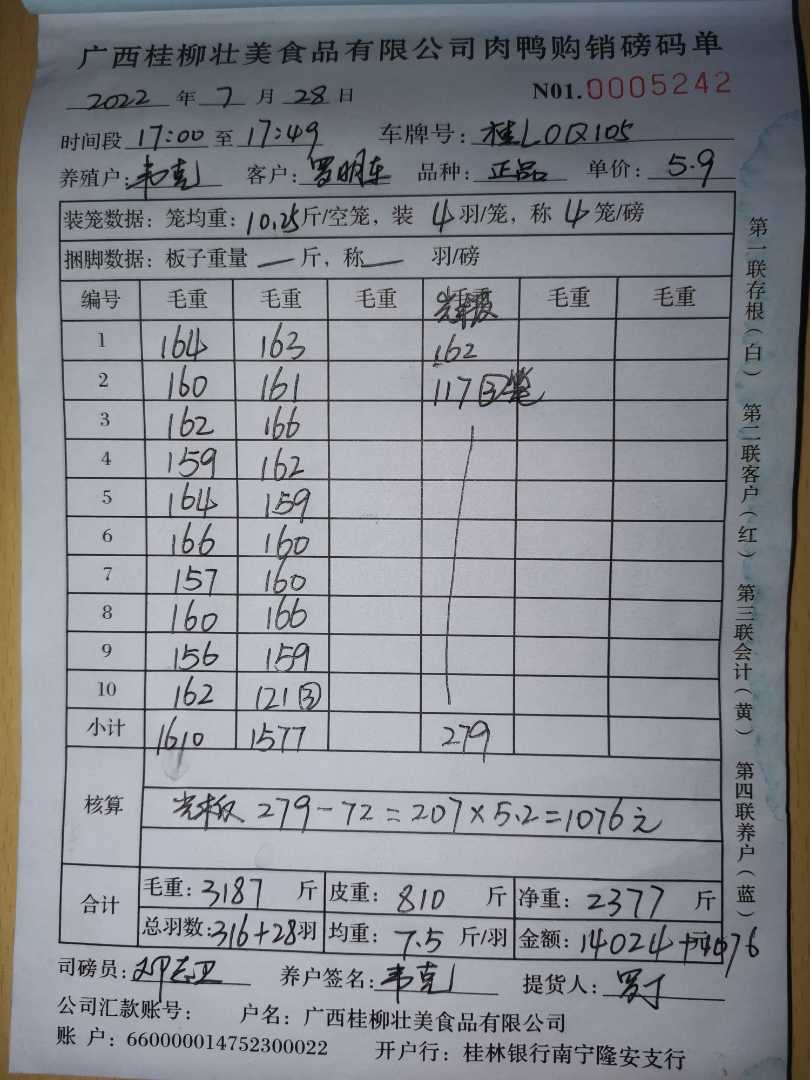 广西桂柳壮美食品有限公司肉鸭购销磅码单
2022 年 7 月 28 日 N01.0005242
时间段 17:00 至 17:49 车牌号: 桂L0Q105
养殖户: 韦克 客户: 罗明东 品种: 正品 单价: 5.9
装笼数据: 笼均重: 10.25 斤/空笼, 装 4 羽/笼, 称 4 笼/磅
捆脚数据: 板子重量 — 斤, 称 — 羽/磅
编号 毛重 毛重 毛重 毛重 毛重
1 164 163 162
2 160 161 117 ③笔
3 162 166
4 159 162
5 164 159
6 166 160
7 157 160
8 160 166
9 156 159
10 162 121 ③
小计 1610 1577 279
核算
光板 279-72=207×5.2=1076元
合计
毛重: 3187 斤 皮重: 810 斤 净重: 2377 斤
总羽数: 316+28羽 均重: 7.5 斤/羽 金额: 14024+1076
司磅员: 养户签名: 韦克 提货人: 罗丁
公司汇款账号: 户名: 广西桂柳壮美食品有限公司
账 户: 660000014752300022 开户行: 桂林银行南宁隆安支行
第一联存根(白) 第二联客户(红) 第三联会计(黄) 第四联养户(蓝)